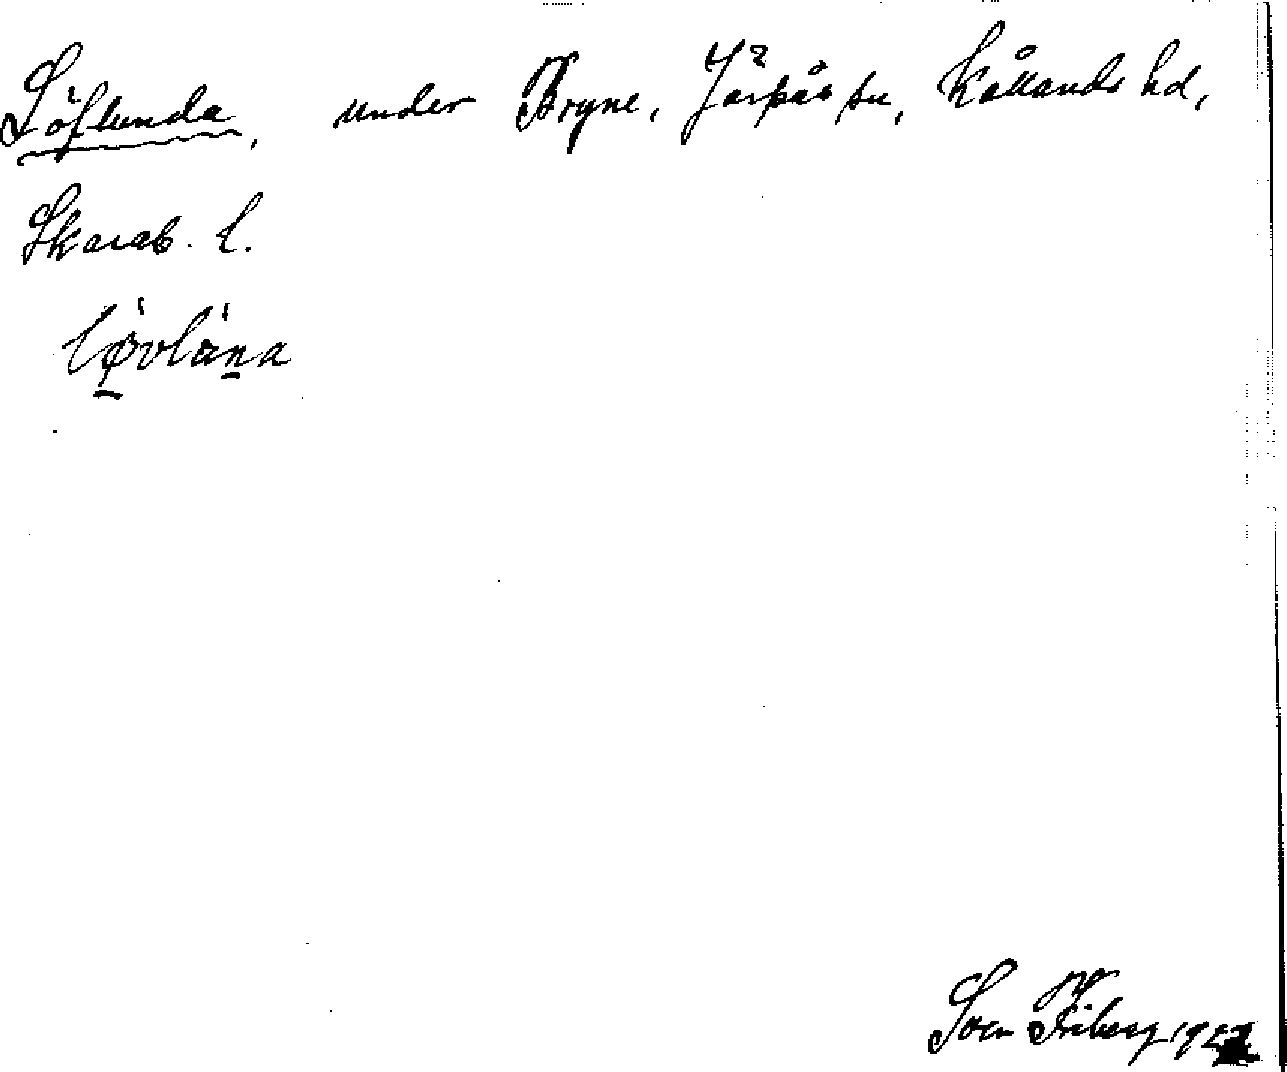 Löflunda, under Bryne, Järpås sn, Kållands hd,
Skarab. l.
lø̱vlan̠a
Sven Friberg